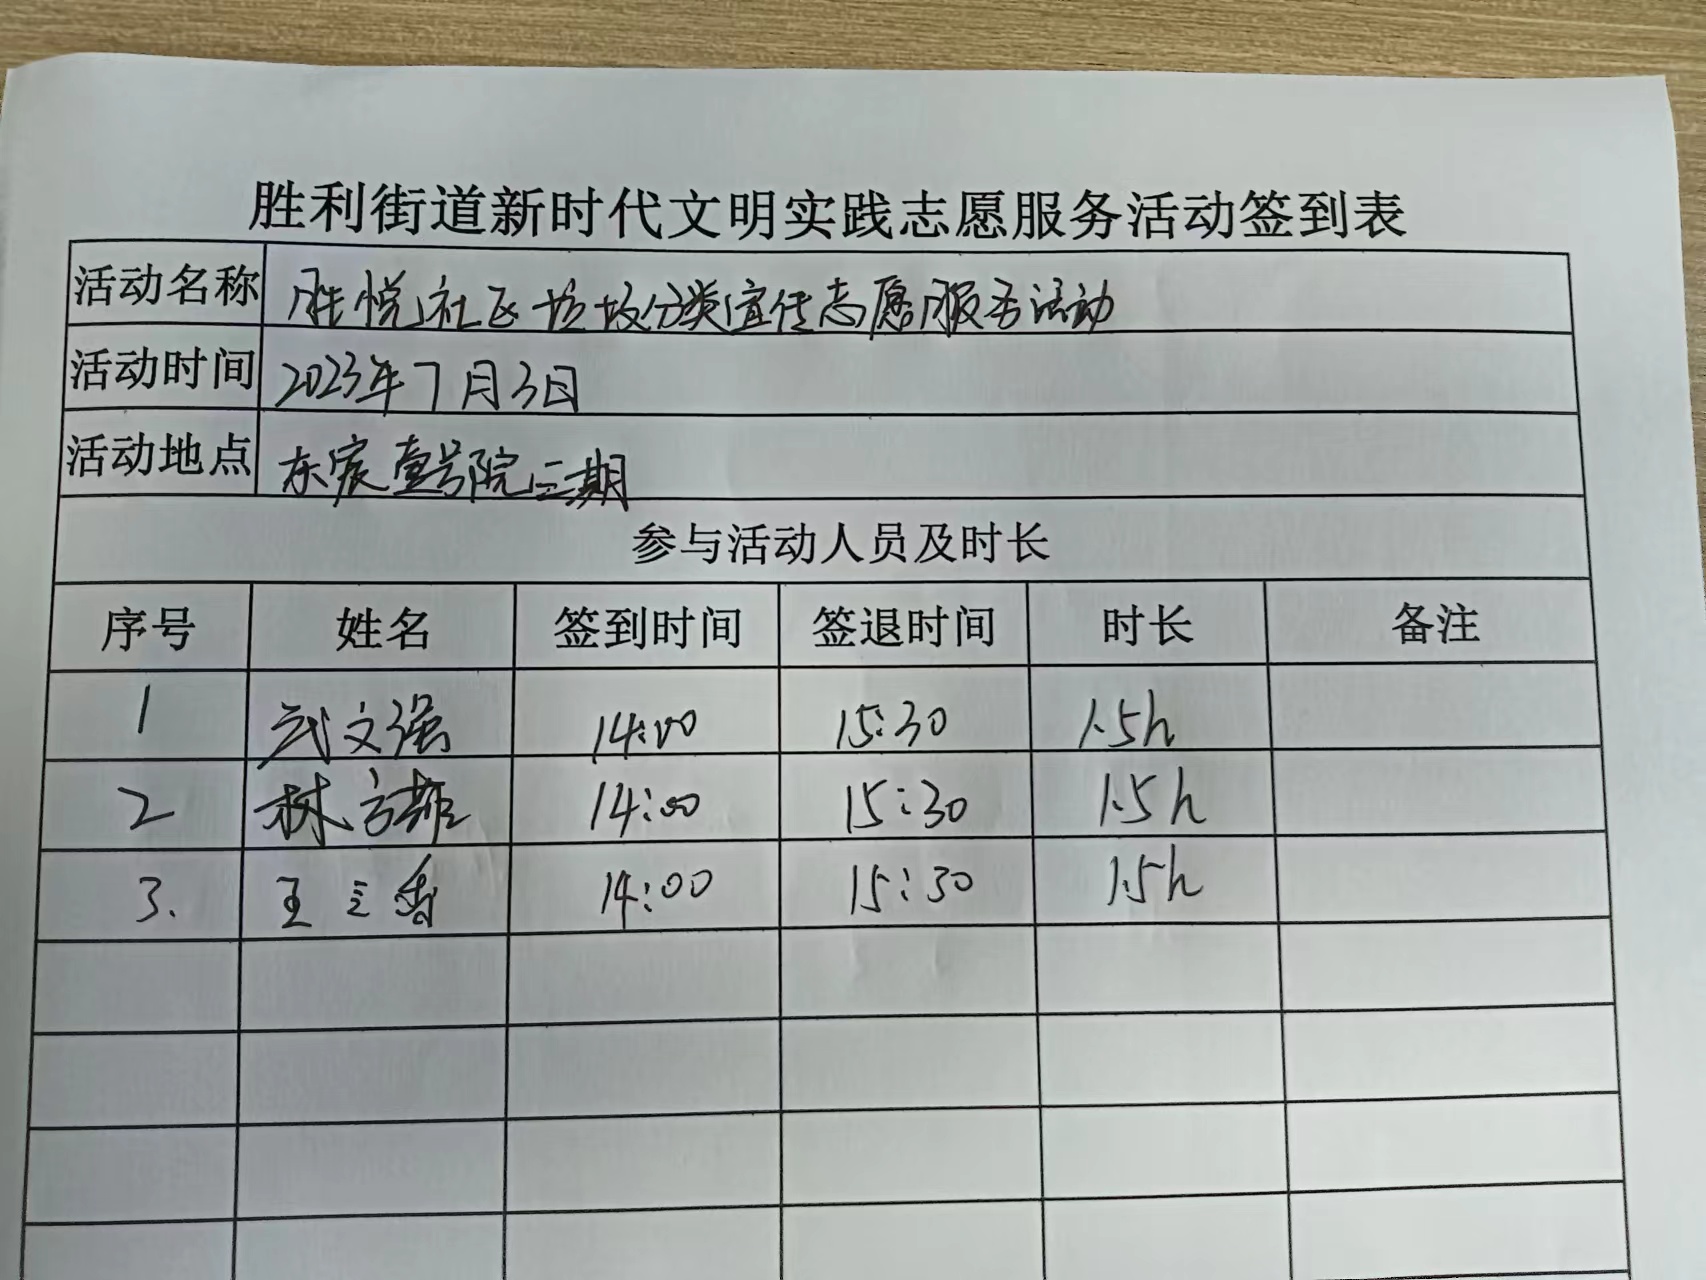 胜利街道新时代文明实践志愿服务活动签到表
活动名称 胜悦社区垃圾分类宣传志愿服务活动
活动时间 2023年7月3日
活动地点 东宸壹号院三期
参与活动人员及时长
序号 姓名 签到时间 签退时间 时长 备注
1 武文强 14:00 15:30 1.5h
2 林方雄 14:00 15:30 1.5h
3. 王 香 14:00 15:30 1.5h